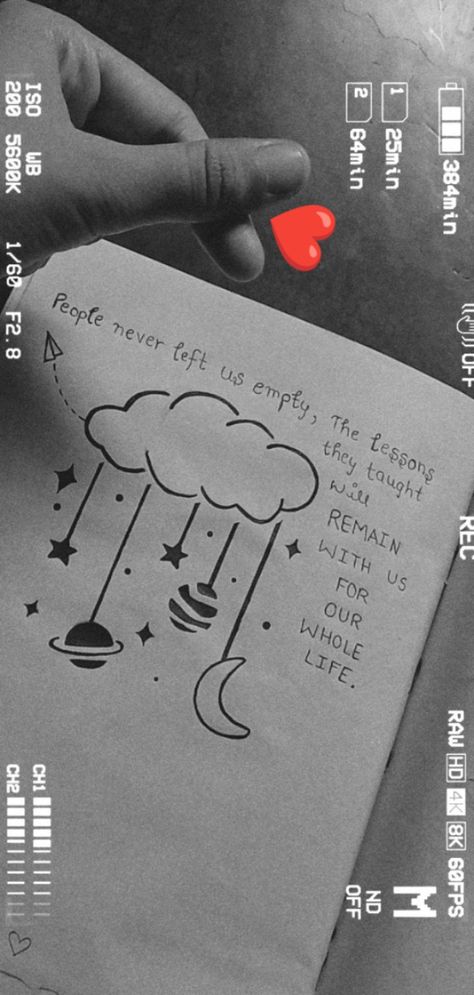 384min
OFF
REC
RAW HD 4K 8K 60FPS
1 25min
2 64min
M
ND
OFF
People never left us empty, The lessons
they taught
will
REMAIN
WITH US
FOR
OUR
WHOLE
LIFE.
ISO WB
200 5600K 1/60 F2.8
CH1
CH2